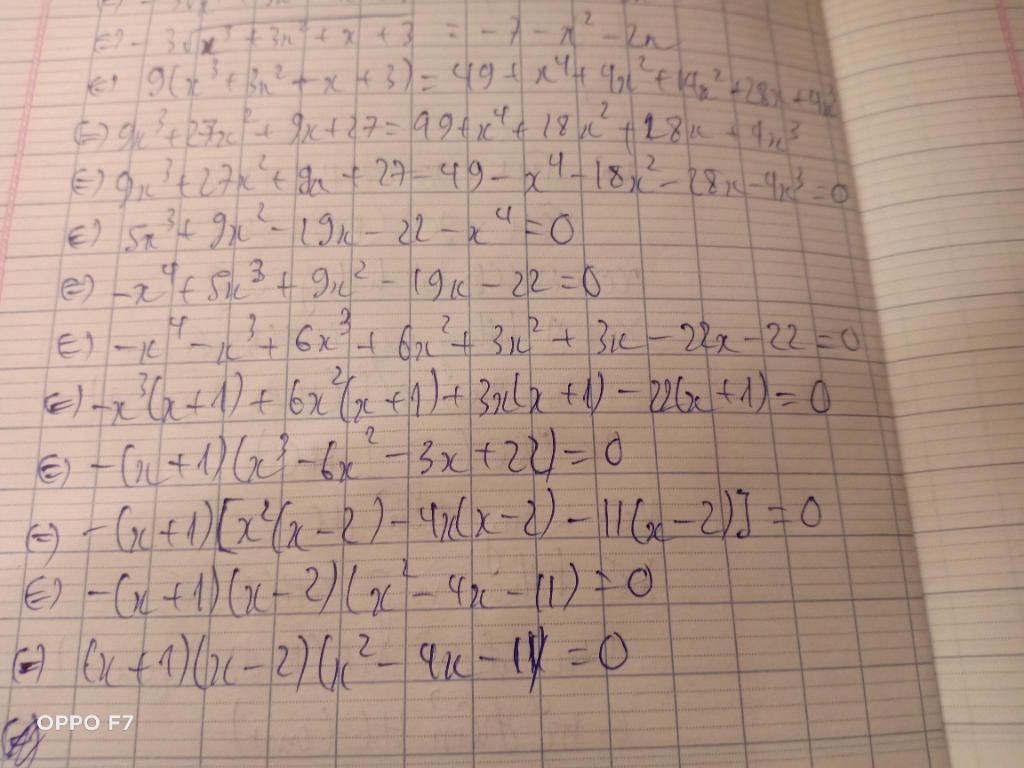 ⇔ -3√x³ + 3x² + x + 3 = -7 - x² - 2x
⇔ 9(x³ + 3x² + x + 3) = 49 + x⁴ + 4x² + 14x² + 28x + 4x³
⇔ 9x³ + 27x² + 9x + 27 = 49 + x⁴ + 18x² + 28x + 4x³
⇔ 9x³ + 27x² + 9x + 27 - 49 - x⁴ - 18x² - 28x - 4x³ = 0
⇔ 5x³ + 9x² - 19x - 22 - x⁴ = 0
⇔ -x⁴ + 5x³ + 9x² - 19x - 22 = 0
⇔ -x⁴ - x³ + 6x³ + 6x² + 3x² + 3x - 22x - 22 = 0
⇔ -x³(x+1) + 6x²(x+1) + 3x(x+1) - 22(x+1) = 0
⇔ -(x+1)(x³ - 6x² - 3x + 22) = 0
⇔ -(x+1)[x²(x-2) - 4x(x-2) - 11(x-2)] = 0
⇔ -(x+1)(x-2)(x² - 4x - 11) = 0
⇔ (x+1)(x-2)(x² - 4x - 11) = 0
OPPO F7